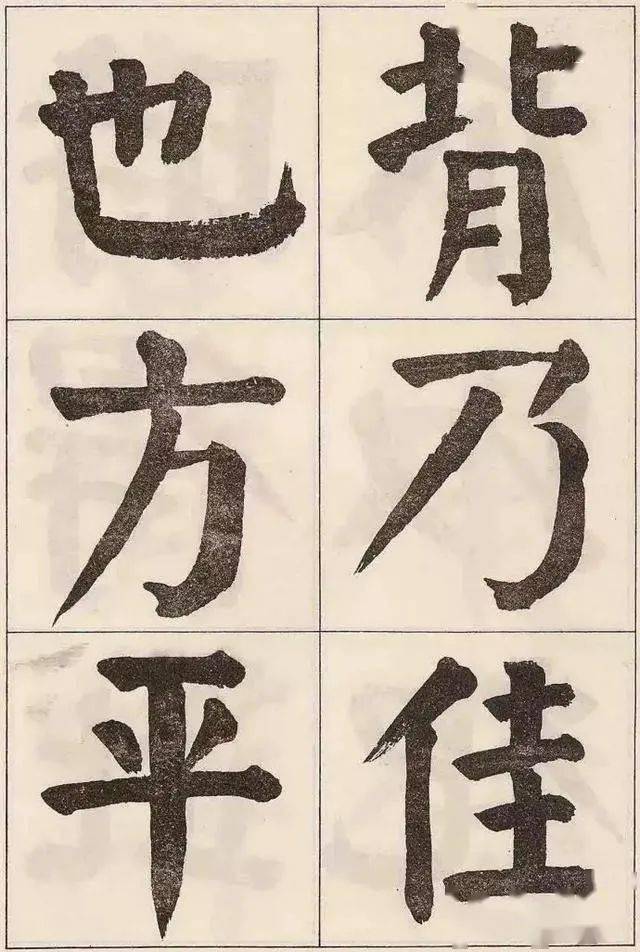 背乃佳
也方平